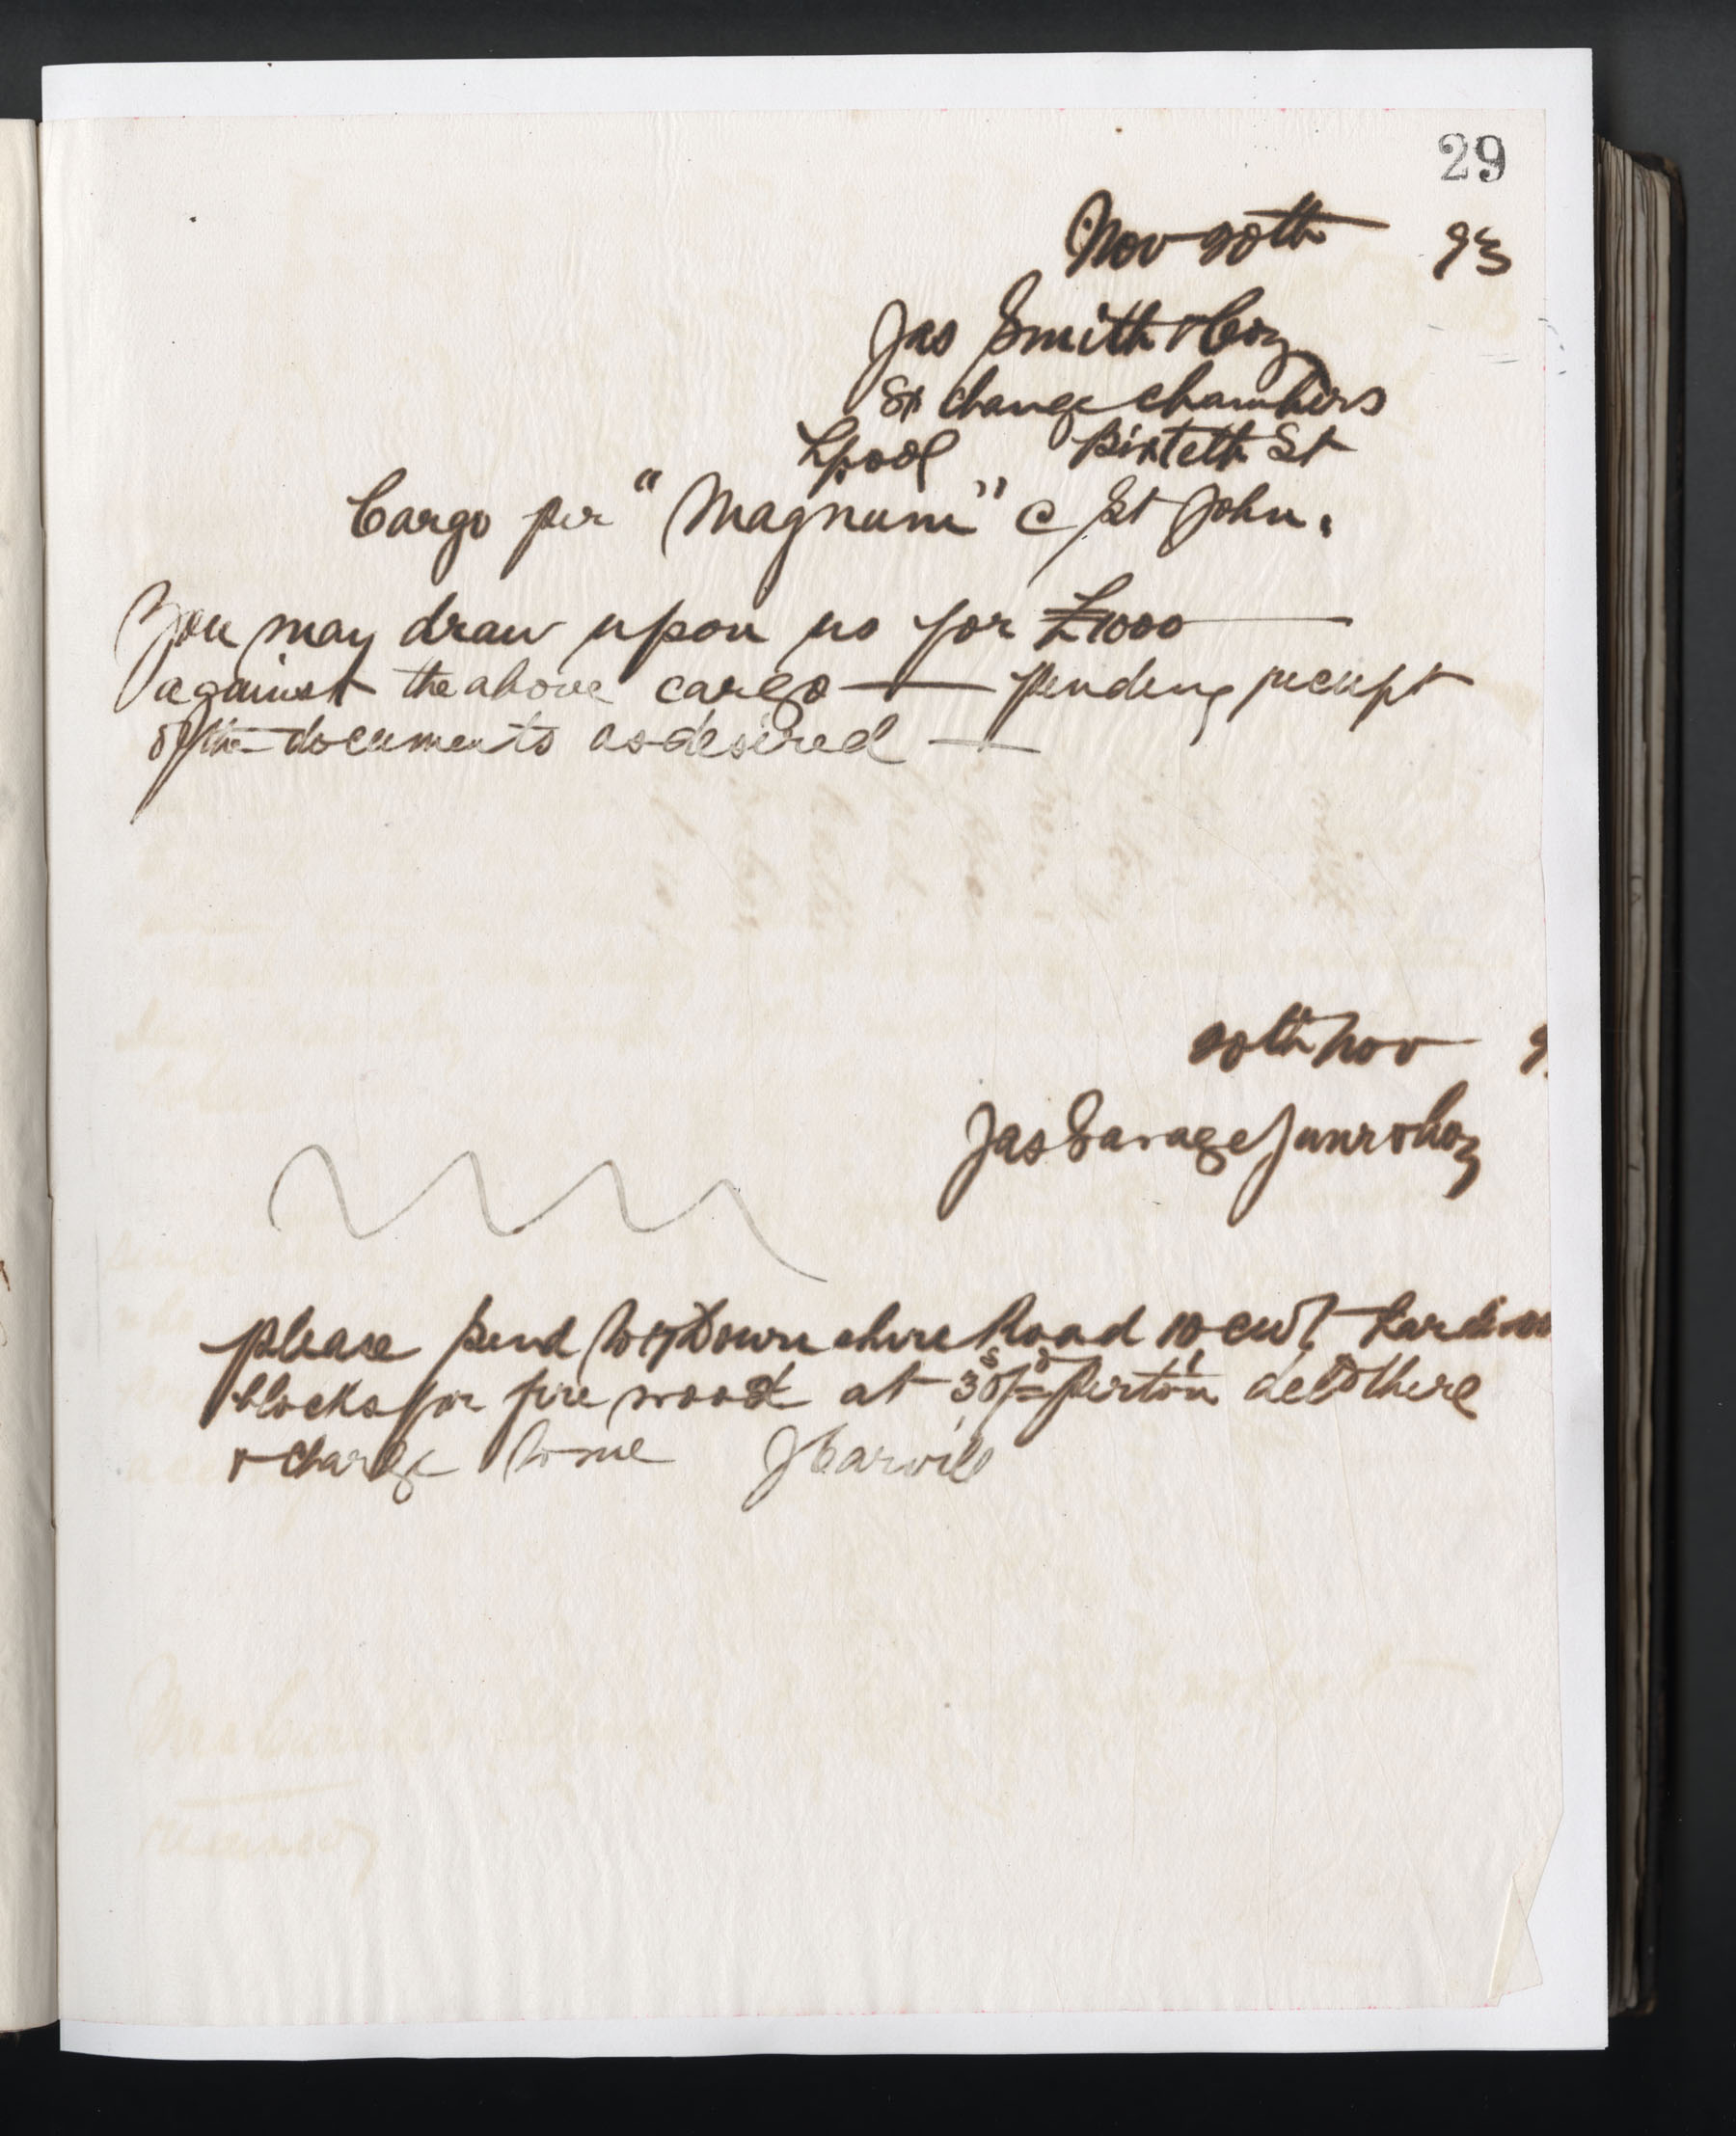 29
Nov 20th 93
Jas Smith & Coy
Exchange Chambers
Lpool Bixteth St
Cargo per "Magnum" @ St John.
You may draw upon us for £1000
against the above cargo — pending receipt
of the documents as desired —
20th Nov 9
Jas Savage Junr & Coy
please send to Downshire Road 10 cwt hardwoo
blocks for fire wood at 30s/= per ton deld there
& charge to me J Carvill